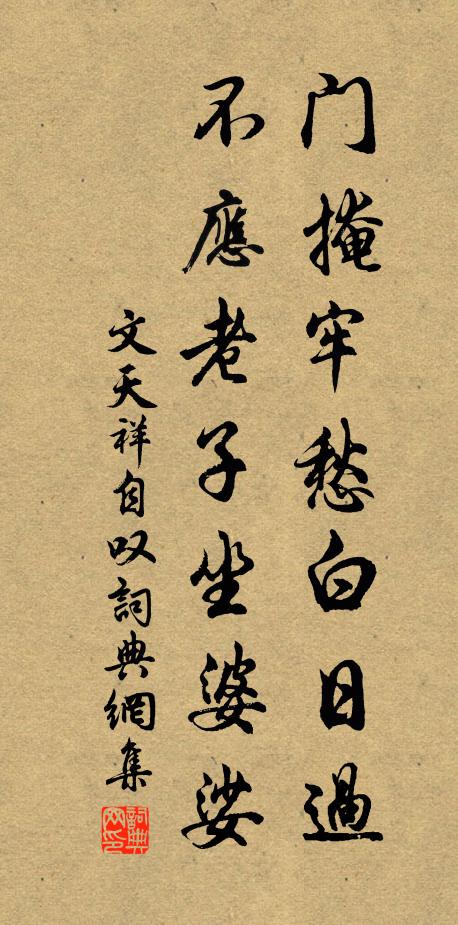 門掩牢愁白日過
不應老子坐婆娑
文天祥自叹詞典網集
詞典网印